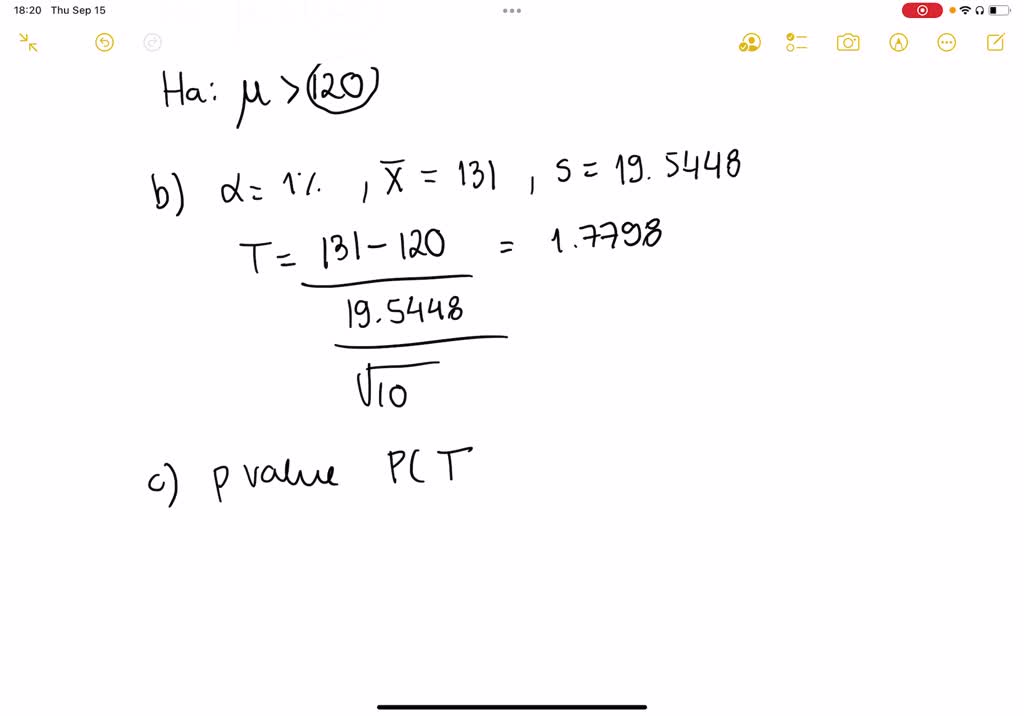 18:20 Thu Sep 15
Ha: μ > 120
b) α = 1% , X̄ = 131 , s = 19.5448
T = 131 - 120 = 1.7798
19.5448
√10
c) p value P( T